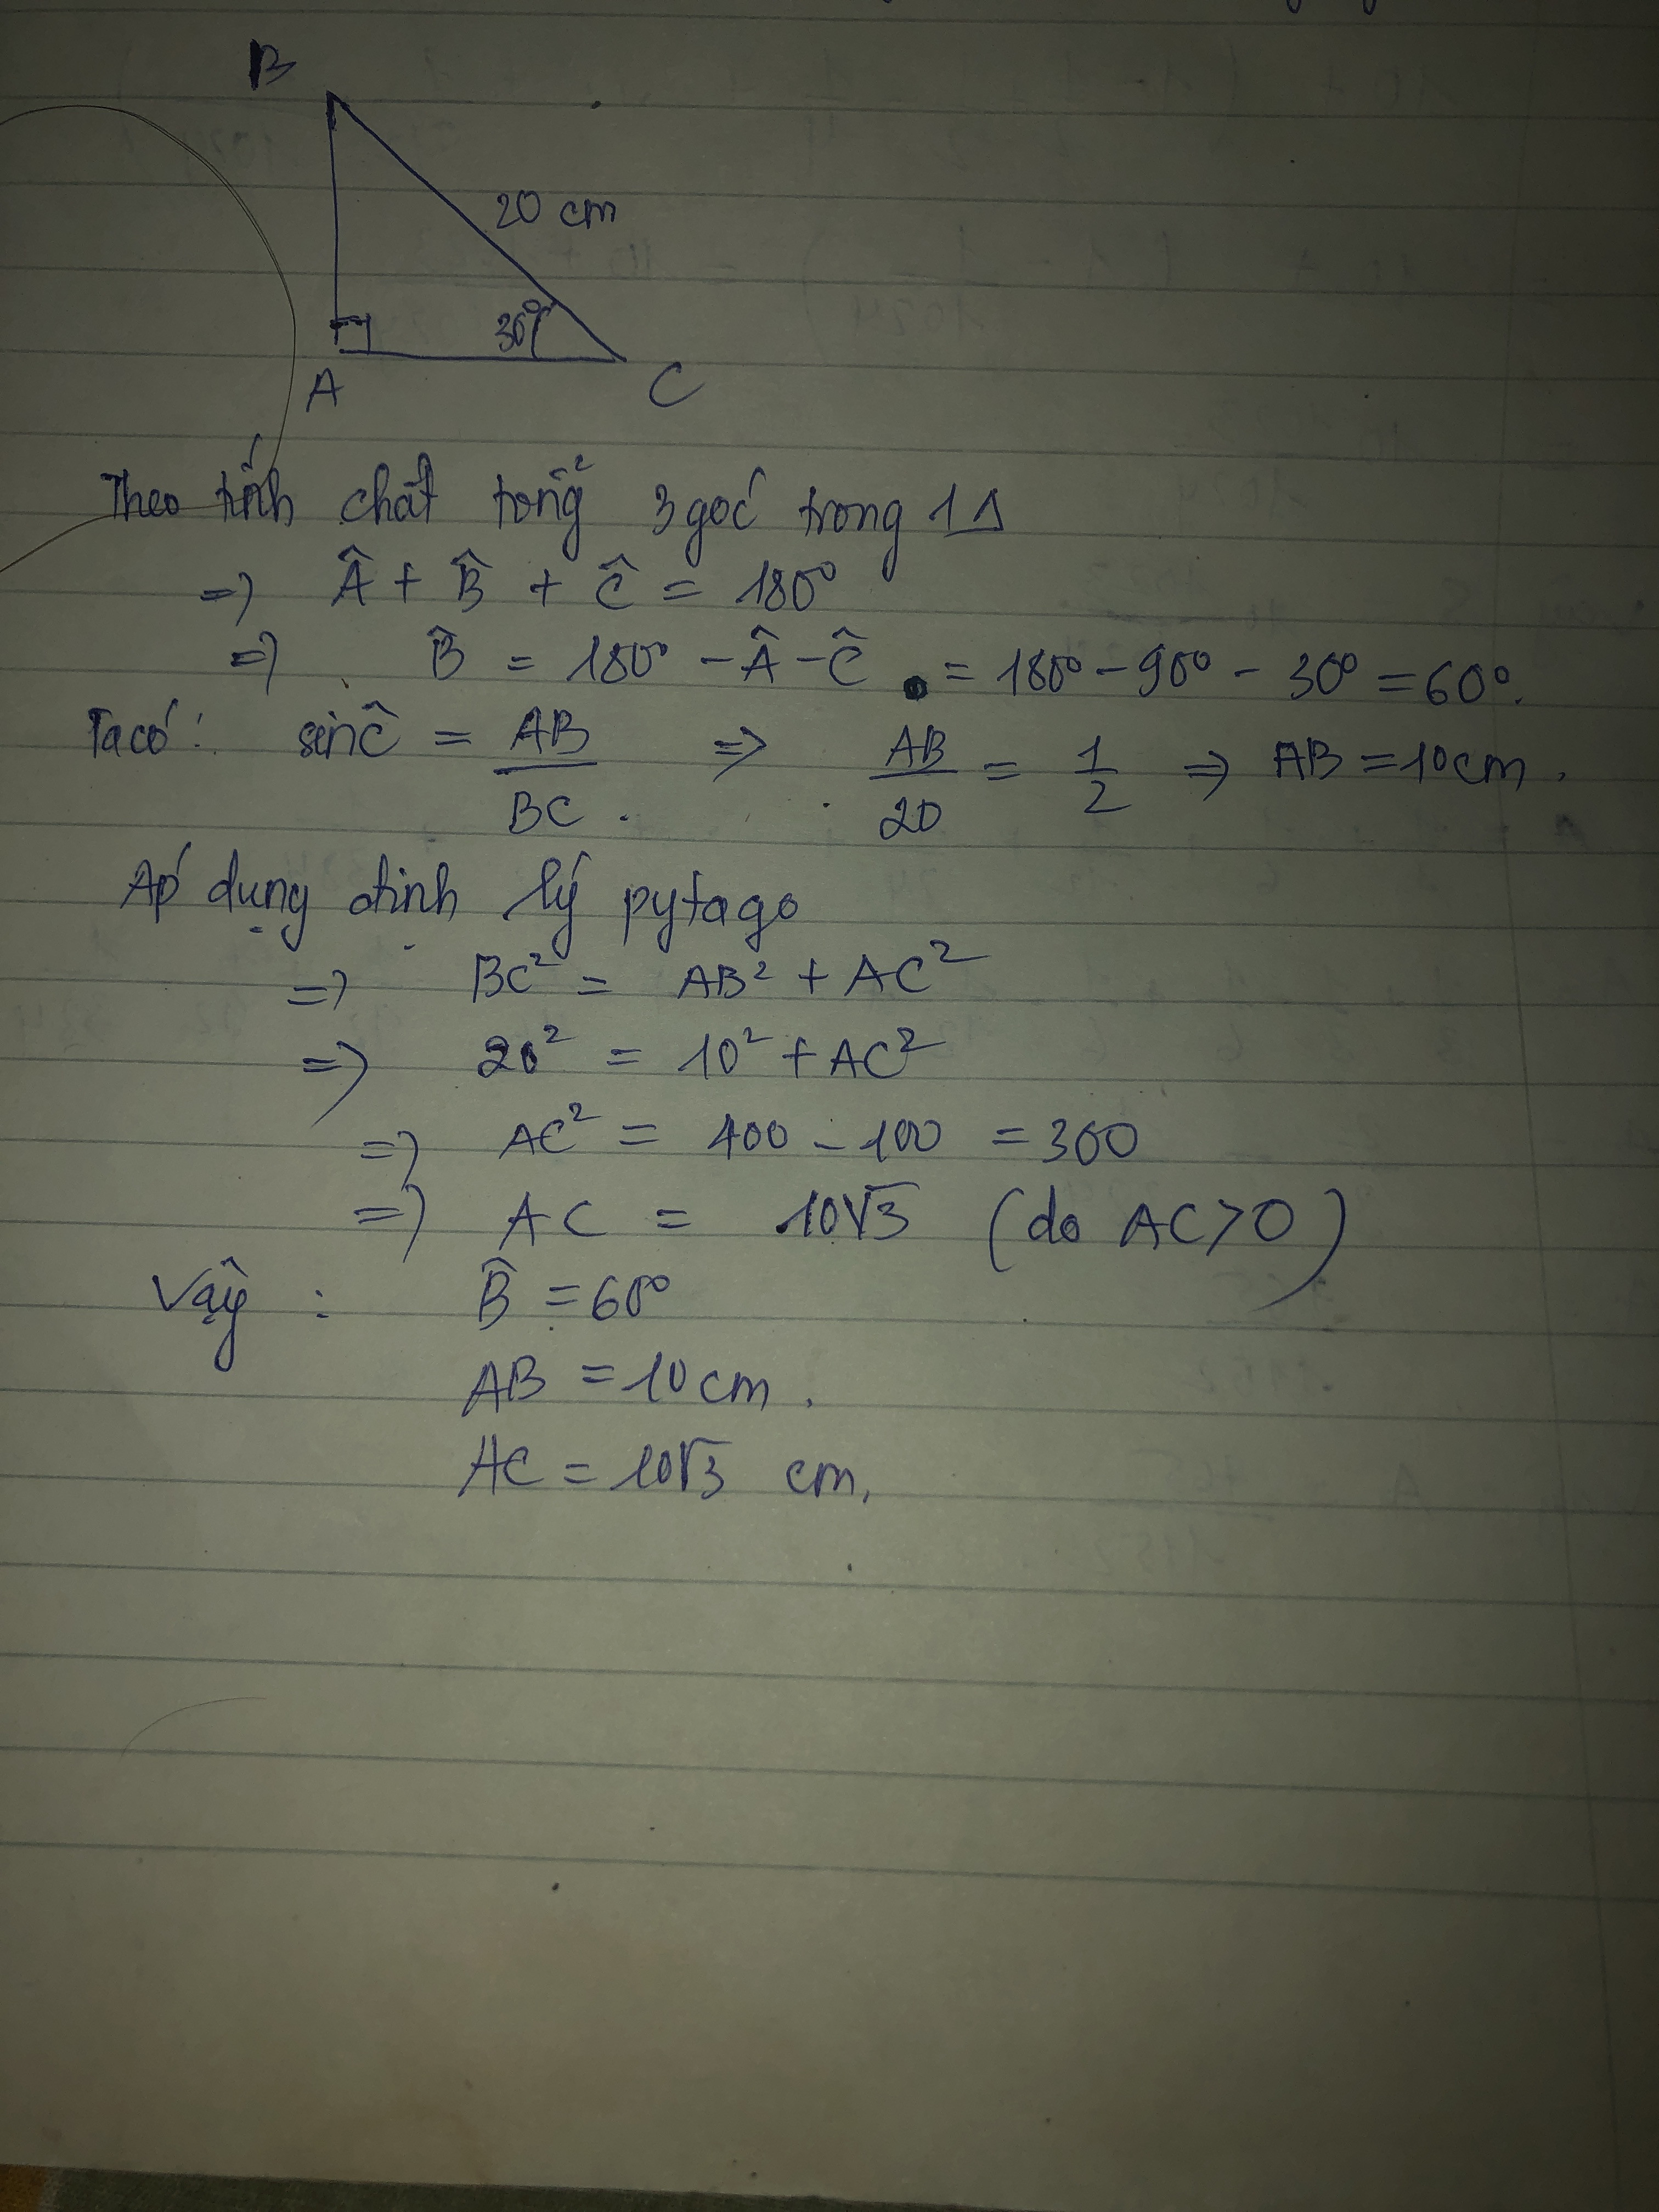 B
20 cm
30°
A
C
Theo tính chất tổng 3 góc trong 1 Δ
=> Â + B̂ + Ĉ = 180°
=> B̂ = 180° - Â - Ĉ = 180° - 90° - 30° = 60°.
Ta có: sin Ĉ = AB/BC. => AB/20 = 1/2 => AB = 10cm.
Áp dụng định lý pytago
=> BC² = AB² + AC²
=> 20² = 10² + AC²
=> AC² = 400 - 100 = 300
=> AC = 10√3 (do AC > 0)
Vậy: B̂ = 60°
AB = 10cm.
AC = 10√3 cm.